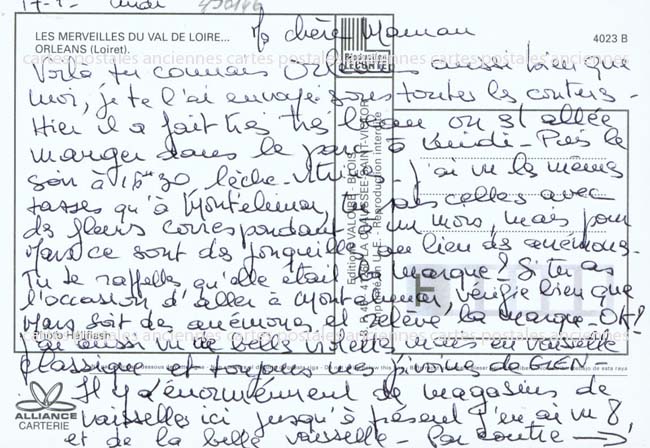 17-2- Lundi
LES MERVEILLES DU VAL DE LOIRE...
ORLEANS (Loiret).
4023 B
Ma chère Maman
Voilà, tu connais Orléans aussi bien que
moi, je te l'ai envoyé sous toutes les coutures -
Hier il a fait très très beau on est allée
manger dans le parc à midi - Puis le
soir à 16h30 lèche-vitrines - J'ai vu les mêmes
tasses qu'à Montelimar, tu sais celles avec
des fleurs correspondant à un mois, mais pour
Mars ce sont des jonquilles au lieu des anémones.
Tu te rappelles qu'elle était la marque? Si tu as
l'occasion d'aller à Montelimar, vérifie bien que
Mars soit des anémones et relève la marque - OK!
J'ai aussi vu de belles violettes mais en vaisselle
plastique et toujours mes pivoines de GIEN -
Il y a énormément de magasins de
vaisselles ici jusqu'à présent j'en ai vu 8,
et de la belle vaisselle - Par contre →
Editions VALOIRE - BLOIS
LA CHAUSSEE-SAINT-VICTOR
Reproduction interdite
Photo Héliflash
ALLIANCE
CARTERIE
cartes postales anciennes